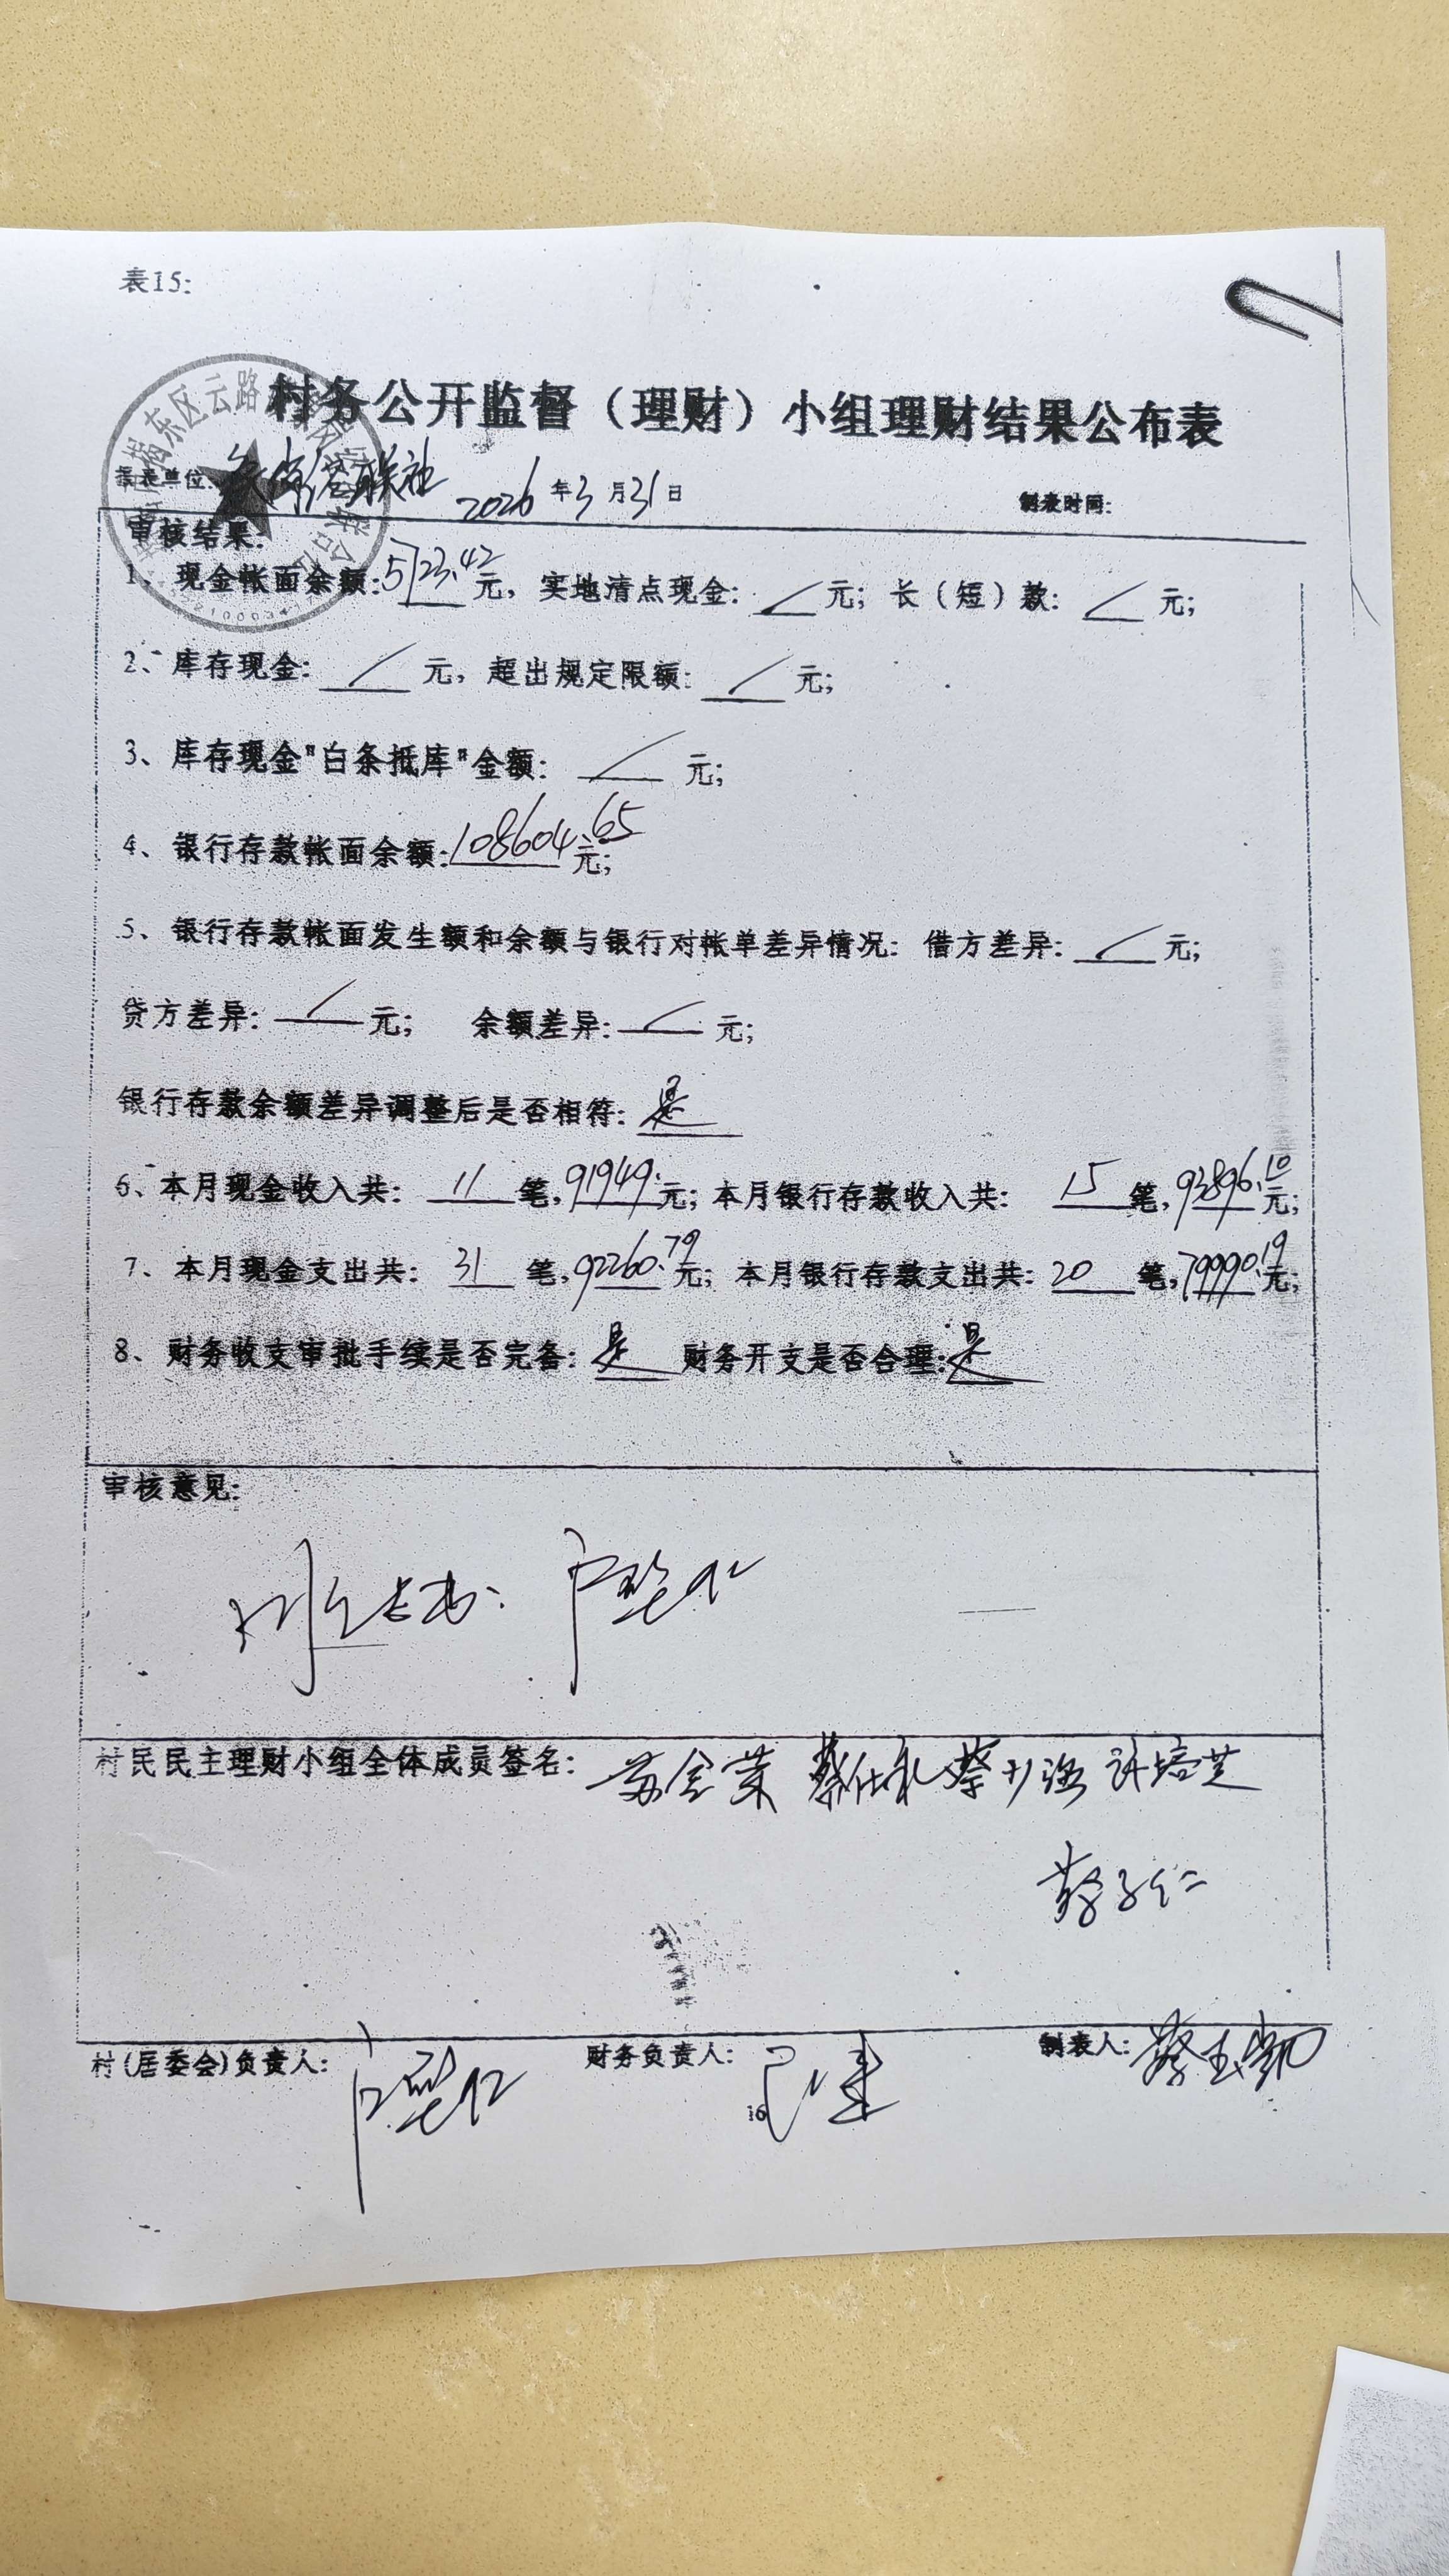 表15:
村务公开监督（理财）小组理财结果公布表
填表单位: 联社 2026年3月31日 制表时间:
审核结果:
1、现金帐面余额:5723.42元，实地清点现金: / 元；长（短）款: / 元；
2、库存现金: / 元，超出规定限额: / 元；
3、库存现金"白条抵库"金额: / 元；
4、银行存款帐面余额:108604.65元；
5、银行存款帐面发生额和余额与银行对帐单差异情况: 借方差异: / 元；
贷方差异: / 元； 余额差异: / 元；
银行存款余额差异调整后是否相符: 是
6、本月现金收入共: 11 笔，91949.元；本月银行存款收入共: 15 笔，93896.10元；
7、本月现金支出共: 31 笔，92260.79元；本月银行存款支出共: 20 笔，79990.19元；
8、财务收支审批手续是否完备: 是 财务开支是否合理: 是
审核意见:
村民民主理财小组全体成员签名: 苏金荣 蔡仕礼 蔡少强 许培芝
蔡子仁
村(居委会)负责人: 财务负责人: 制表人:
16